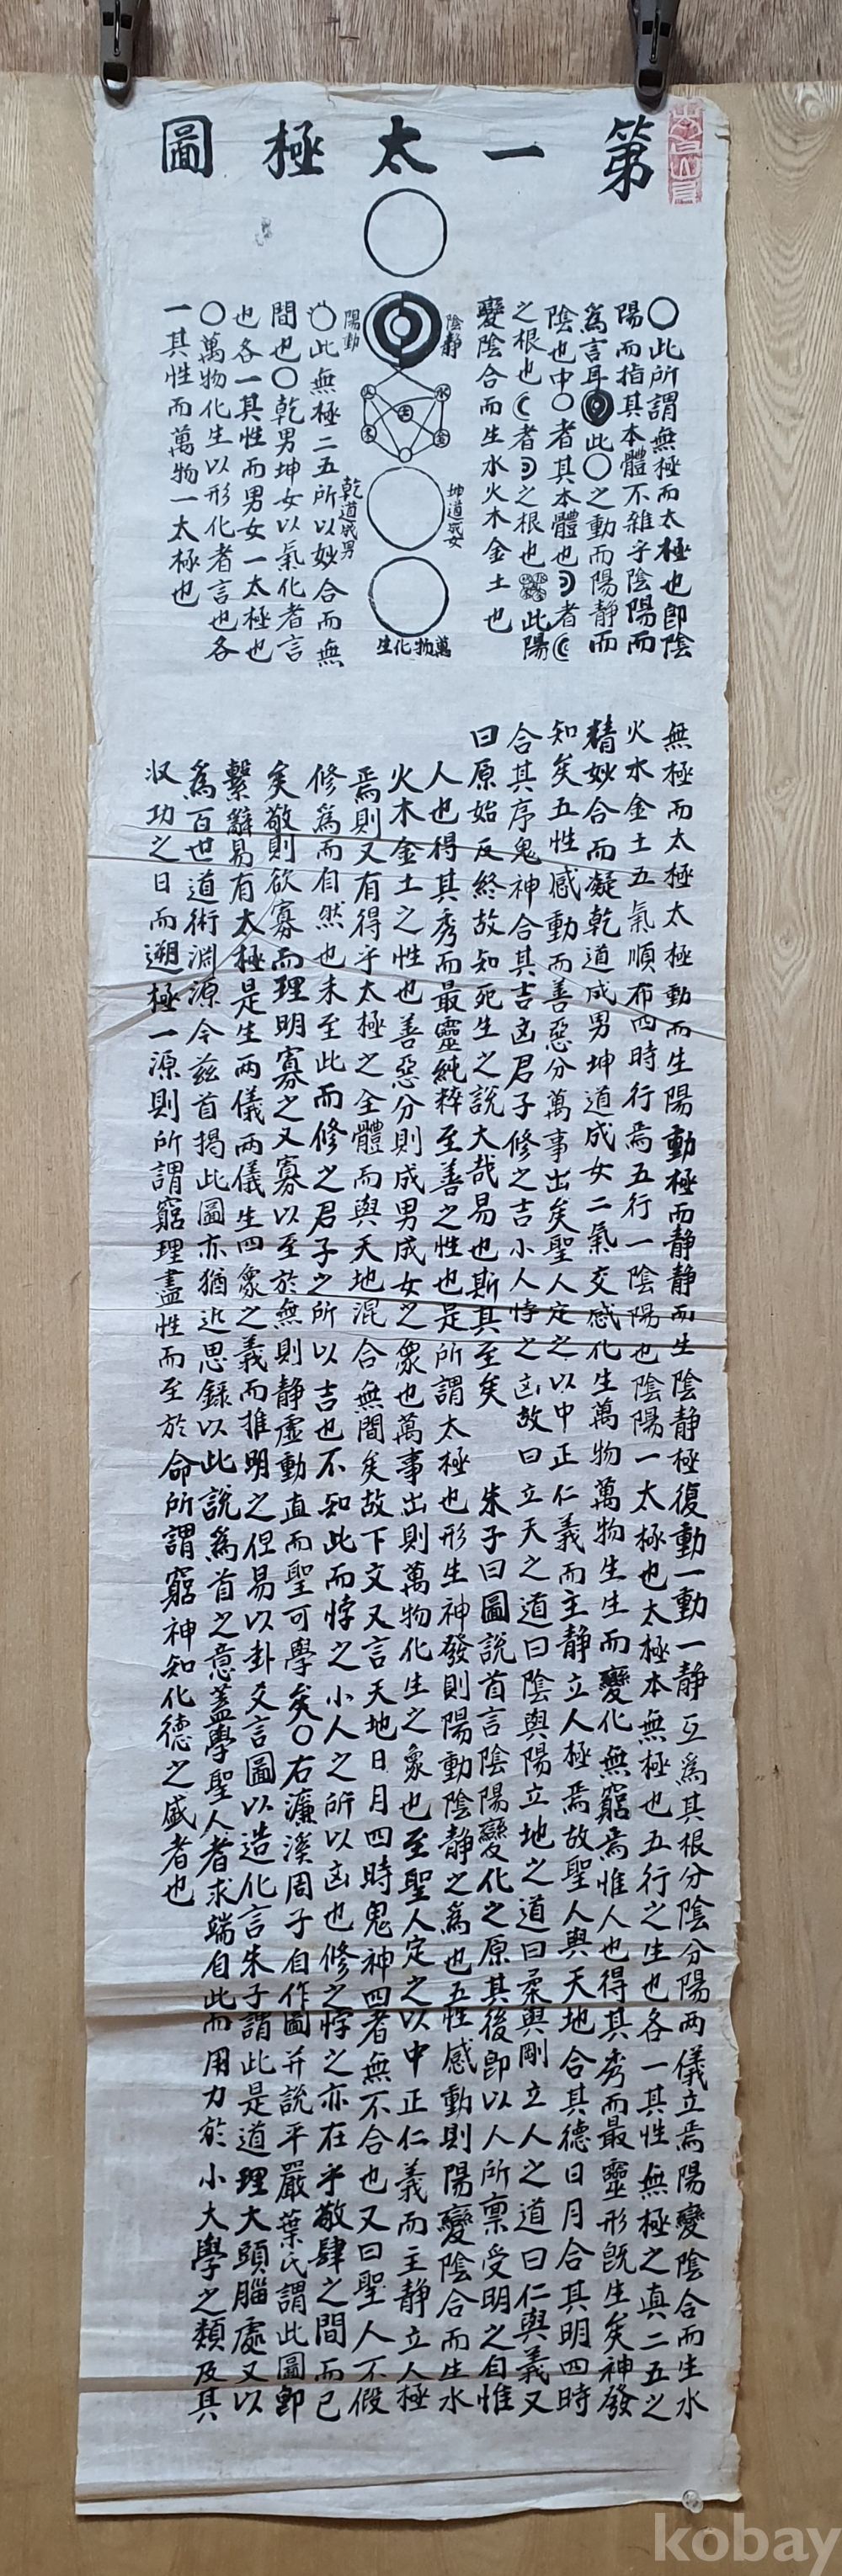 第一太極圖
○此所謂無極而太極也卽陰
陽而指其本體不雜乎陰陽而
爲言耳此○之動而陽静而
陰也中○者其本體也☽者☾
之根也☾者☽之根也此陽
變陰合而生水火木金土也
陰静
陽動
水
火
土
金
木
坤道成女
乾道成男
萬物化生
○此無極二五所以妙合而無
間也○乾男坤女以氣化者言
也各一其性而男女一太極也
○萬物化生以形化者言也各
一其性而萬物一太極也
無極而太極太極動而生陽動極而静静而生陰静極復動一動一静互爲其根分陰分陽兩儀立焉陽變陰合而生水
火水金土五氣順布四時行焉五行一陰陽也陰陽一太極也太極本無極也五行之生也各一其性無極之真二五之
精妙合而凝乾道成男坤道成女二氣交感化生萬物萬物生生而變化無窮焉惟人也得其秀而最靈形既生矣神發
知矣五性感動而善惡分萬事出矣聖人定之以中正仁義而主静立人極焉故聖人與天地合其德日月合其明四時
合其序鬼神合其吉凶君子修之吉小人悖之凶故曰立天之道曰陰與陽立地之道曰柔與剛立人之道曰仁與義又
曰原始反終故知死生之說大哉易也斯其至矣 朱子曰圖說首言陰陽變化之原其後卽以人所稟受明之自惟
人也得其秀而最靈純粹至善之性也是所謂太極也形生神發則陽動陰静之爲也五性感動則陽變陰合而生水
火木金土之性也善惡分則成男成女之象也萬事出則萬物化生之象也至聖人定之以中正仁義而主静立人極
焉則又有得乎太極之全體而與天地混合無間矣故下文又言天地日月四時鬼神四者無不合也又曰聖人不假
修爲而自然也未至此而修之君子之所以吉也不知此而悖之小人之所以凶也修之悖之亦在乎敬肆之間而已
矣敬則欲寡而理明寡之又寡以至於無則静虛動直而聖可學矣○右濂溪周子自作圖并說平嚴葉氏謂此圖卽
繫辭易有太極是生兩儀兩儀生四象之義而推明之但易以卦爻言圖以造化言朱子謂此是道理大頭腦處又以
爲百世道術淵源今茲首揭此圖亦猶近思錄以此說爲首之意蓋學聖人者求端自此而用力於小大學之類及其
収功之日而遡極一源則所謂窮理盡性而至於命所謂窮神知化德之盛者也
kobay